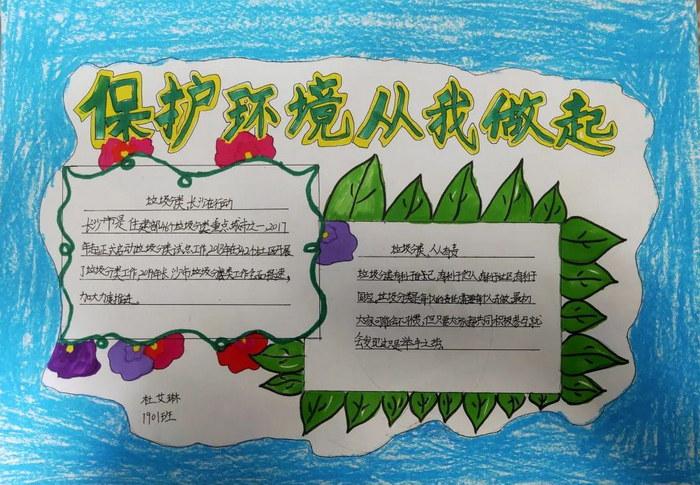 保护环境从我做起
垃圾分类 长沙在行动
长沙市是住建部46个垃圾分类重点城市之一,2017
年在正式启动垃圾分类试点工作,2018年在342个社区开展
了垃圾分类工作,2019年长沙市垃圾分类工作全面提速,
加大力度推进。
垃圾分类,人人有责
垃圾分类有利于自己,有利于他人,有利于社区,有利于
国家,垃圾分类是时代的责任需要每个人去做,最初
大家可能会不习惯,但只要大家都共同积极参与,就
会发现这是举手之劳。
杜艾琳
1901班